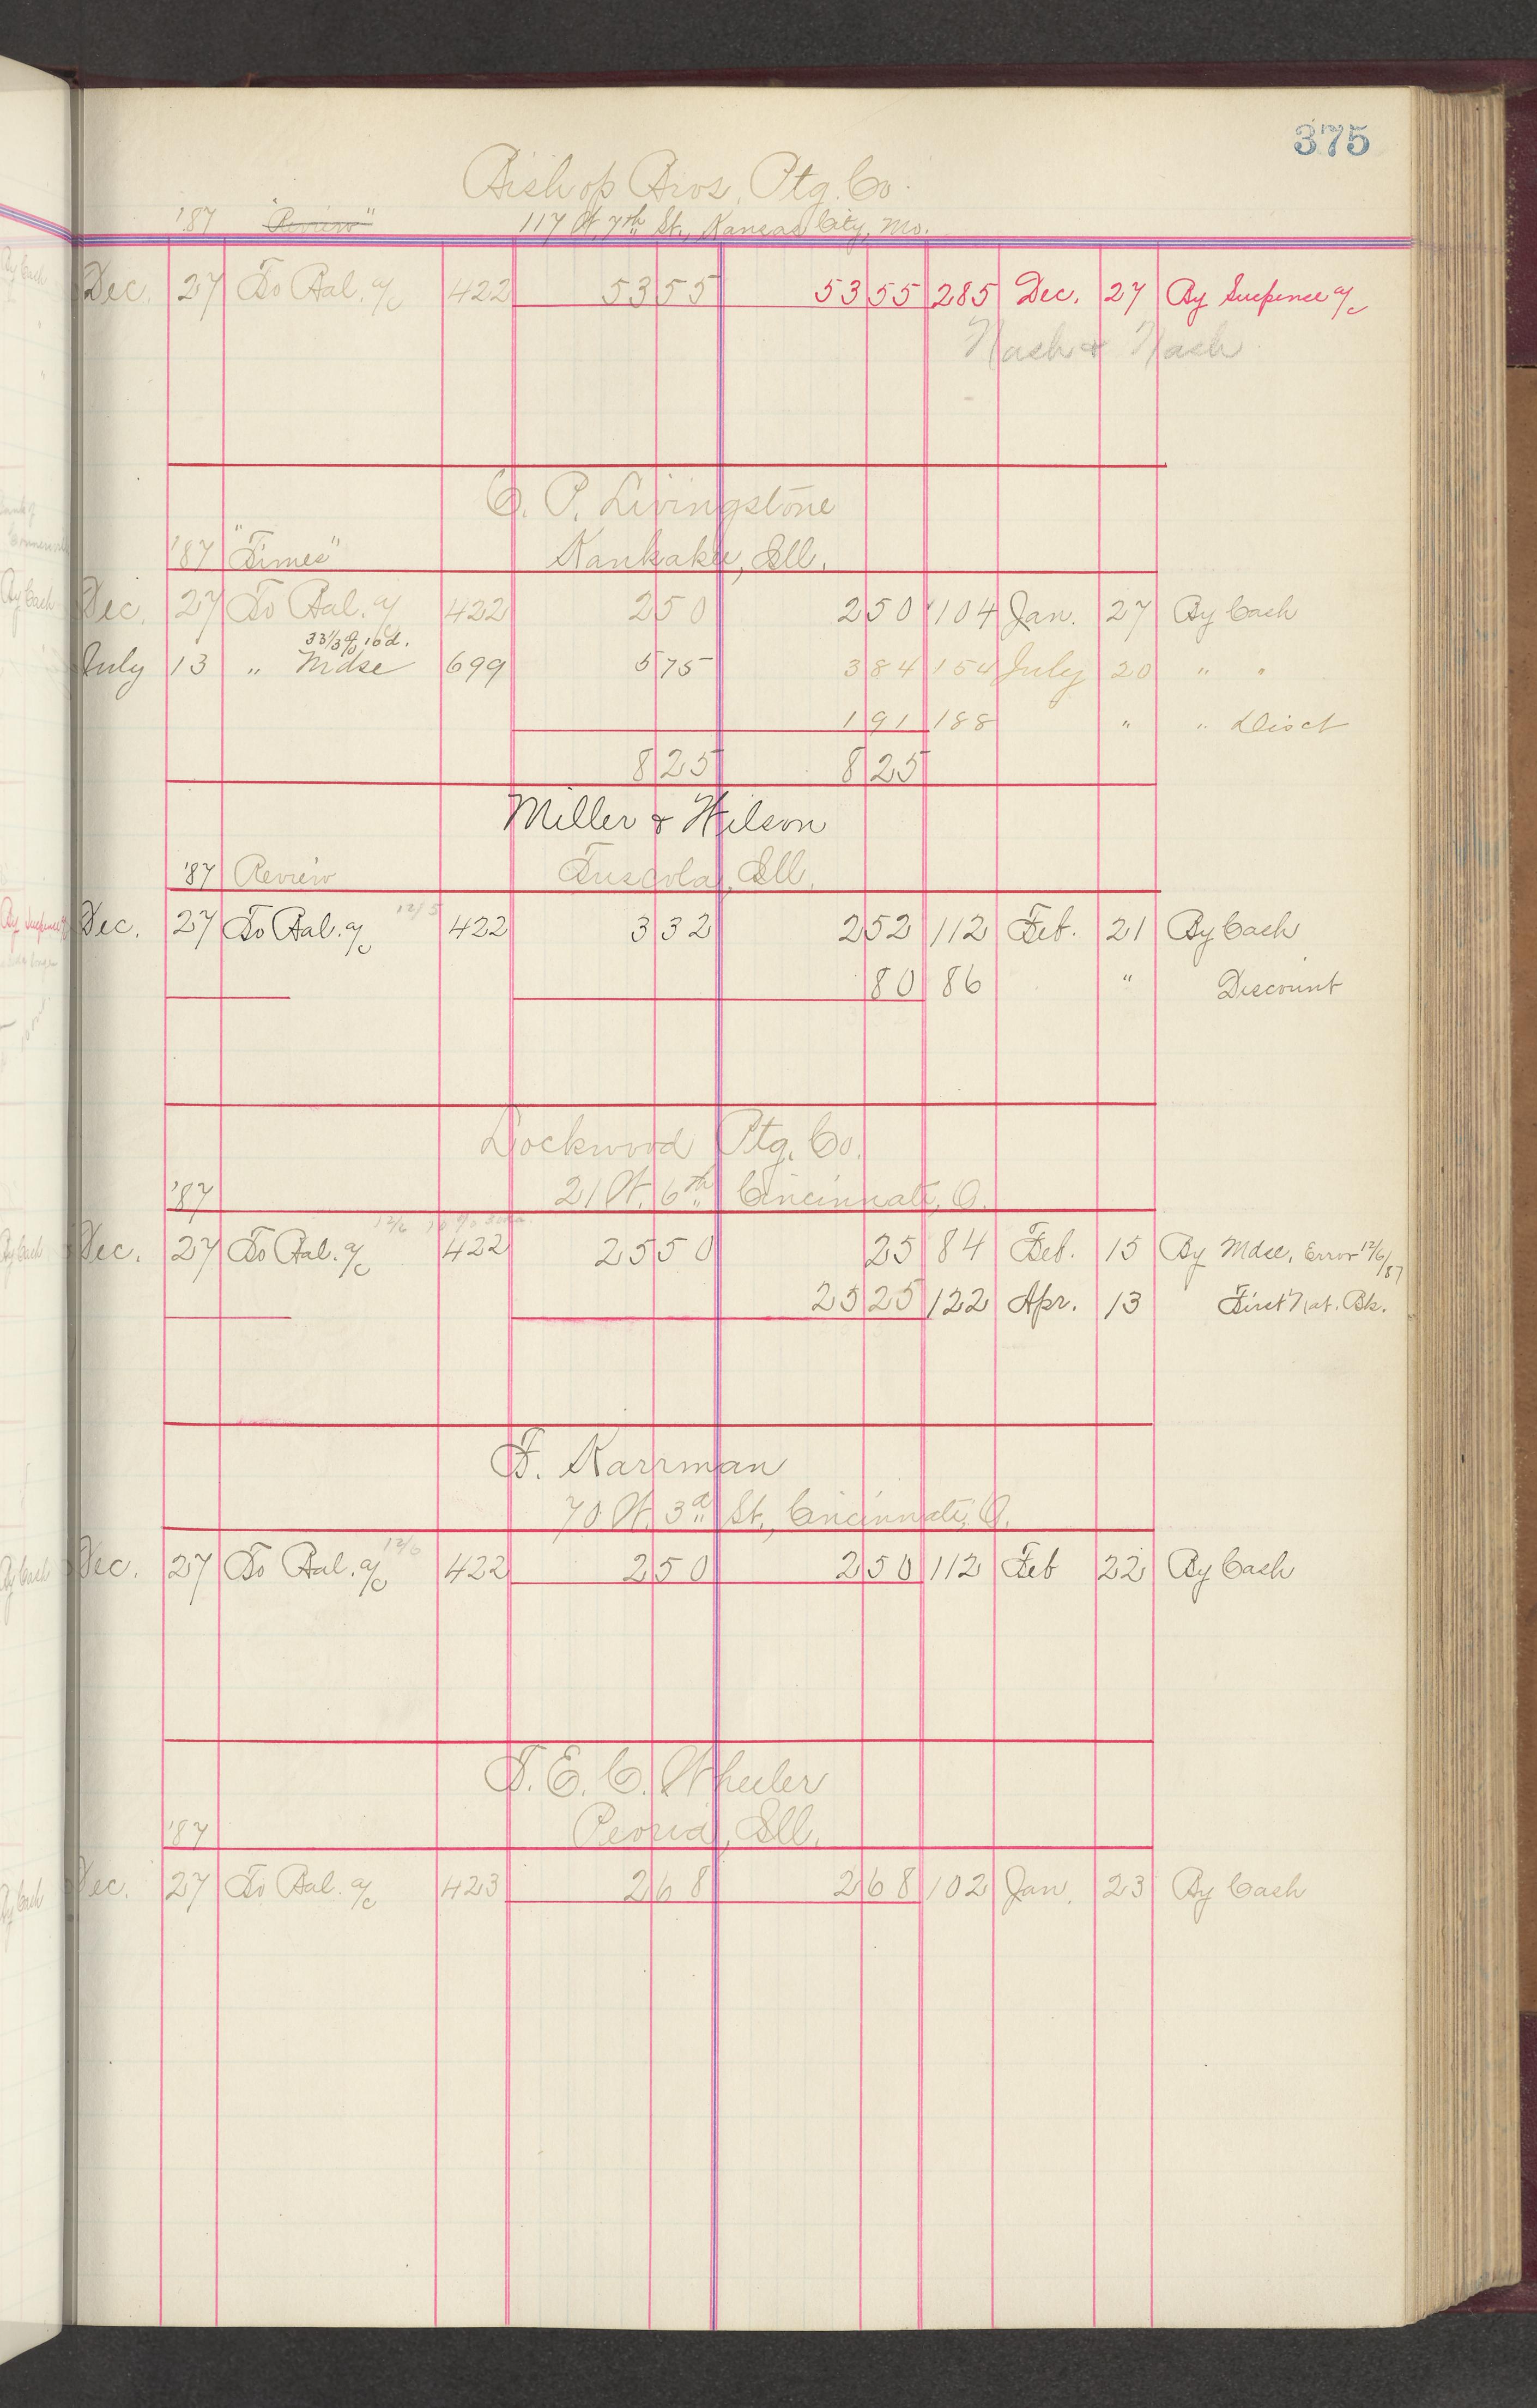 375
Bishop Bros. Ptg. Co.
'87 "Review" 117 W. 7th St., Kansas City, Mo.
Dec. 27 To Bal. a/c 422 53 55 53 55 285 Dec. 27 By Suspence a/c
Nash & Nash
C. P. Livingstone
'87 "Times" Kankakee, Ill.
Dec. 27 To Bal. a/ 422 2 50 2 50 104 Jan. 27 By Cash
33 1/3 % 10 d.
July 13 " Mdse 699 5 75 3 84 154 July 20 " "
1 91 188 " " Disct
8 25 8 25
Miller & Wilson
'87 Review Tuscola, Ill.
12/5
Dec. 27 To Bal. a/c 422 3 32 2 52 112 Feb. 21 By Cash
80 86 " Discount
Lockwood Ptg. Co.
'87 21 W. 6th Cincinnati, O.
Dec. 27 To Bal. a/c 422 25 50 25 84 Feb. 15 By Mdse, Error 12/6/87
25 25 122 Apr. 13 First Nat. Bk.
F. Karrman
70 W. 3d St., Cincinnati, O.
12/6
Dec. 27 To Bal. a/c 422 2 50 2 50 112 Feb 22 By Cash
T. E. C. Wheeler
'87 Peoria, Ill.
Dec. 27 To Bal. a/c 423 2 68 2 68 102 Jan. 23 By Cash